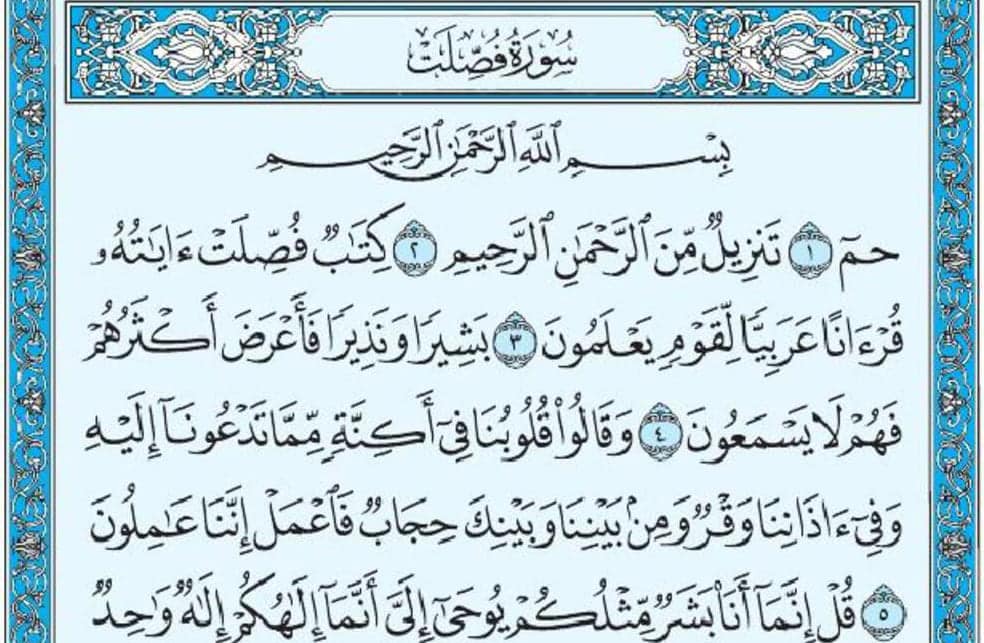 سُورَةُ فُصِّلَتْ
بِسْمِ ٱللَّهِ ٱلرَّحْمَٰنِ ٱلرَّحِيمِ
حمٓ ١ تَنزِيلٌ مِّنَ ٱلرَّحْمَٰنِ ٱلرَّحِيمِ ٢ كِتَٰبٌ فُصِّلَتْ ءَايَٰتُهُۥ
قُرْءَانًا عَرَبِيًّا لِّقَوْمٍ يَعْلَمُونَ ٣ بَشِيرًا وَنَذِيرًا فَأَعْرَضَ أَكْثَرُهُمْ
فَهُمْ لَا يَسْمَعُونَ ٤ وَقَالُوا۟ قُلُوبُنَا فِىٓ أَكِنَّةٍ مِّمَّا تَدْعُونَآ إِلَيْهِ
وَفِىٓ ءَاذَانِنَا وَقْرٌ وَمِنۢ بَيْنِنَا وَبَيْنِكَ حِجَابٌ فَٱعْمَلْ إِنَّنَا عَٰمِلُونَ
٥ قُلْ إِنَّمَآ أَنَا۠ بَشَرٌ مِّثْلُكُمْ يُوحَىٰٓ إِلَىَّ أَنَّمَآ إِلَٰهُكُمْ إِلَٰهٌ وَٰحِدٌ